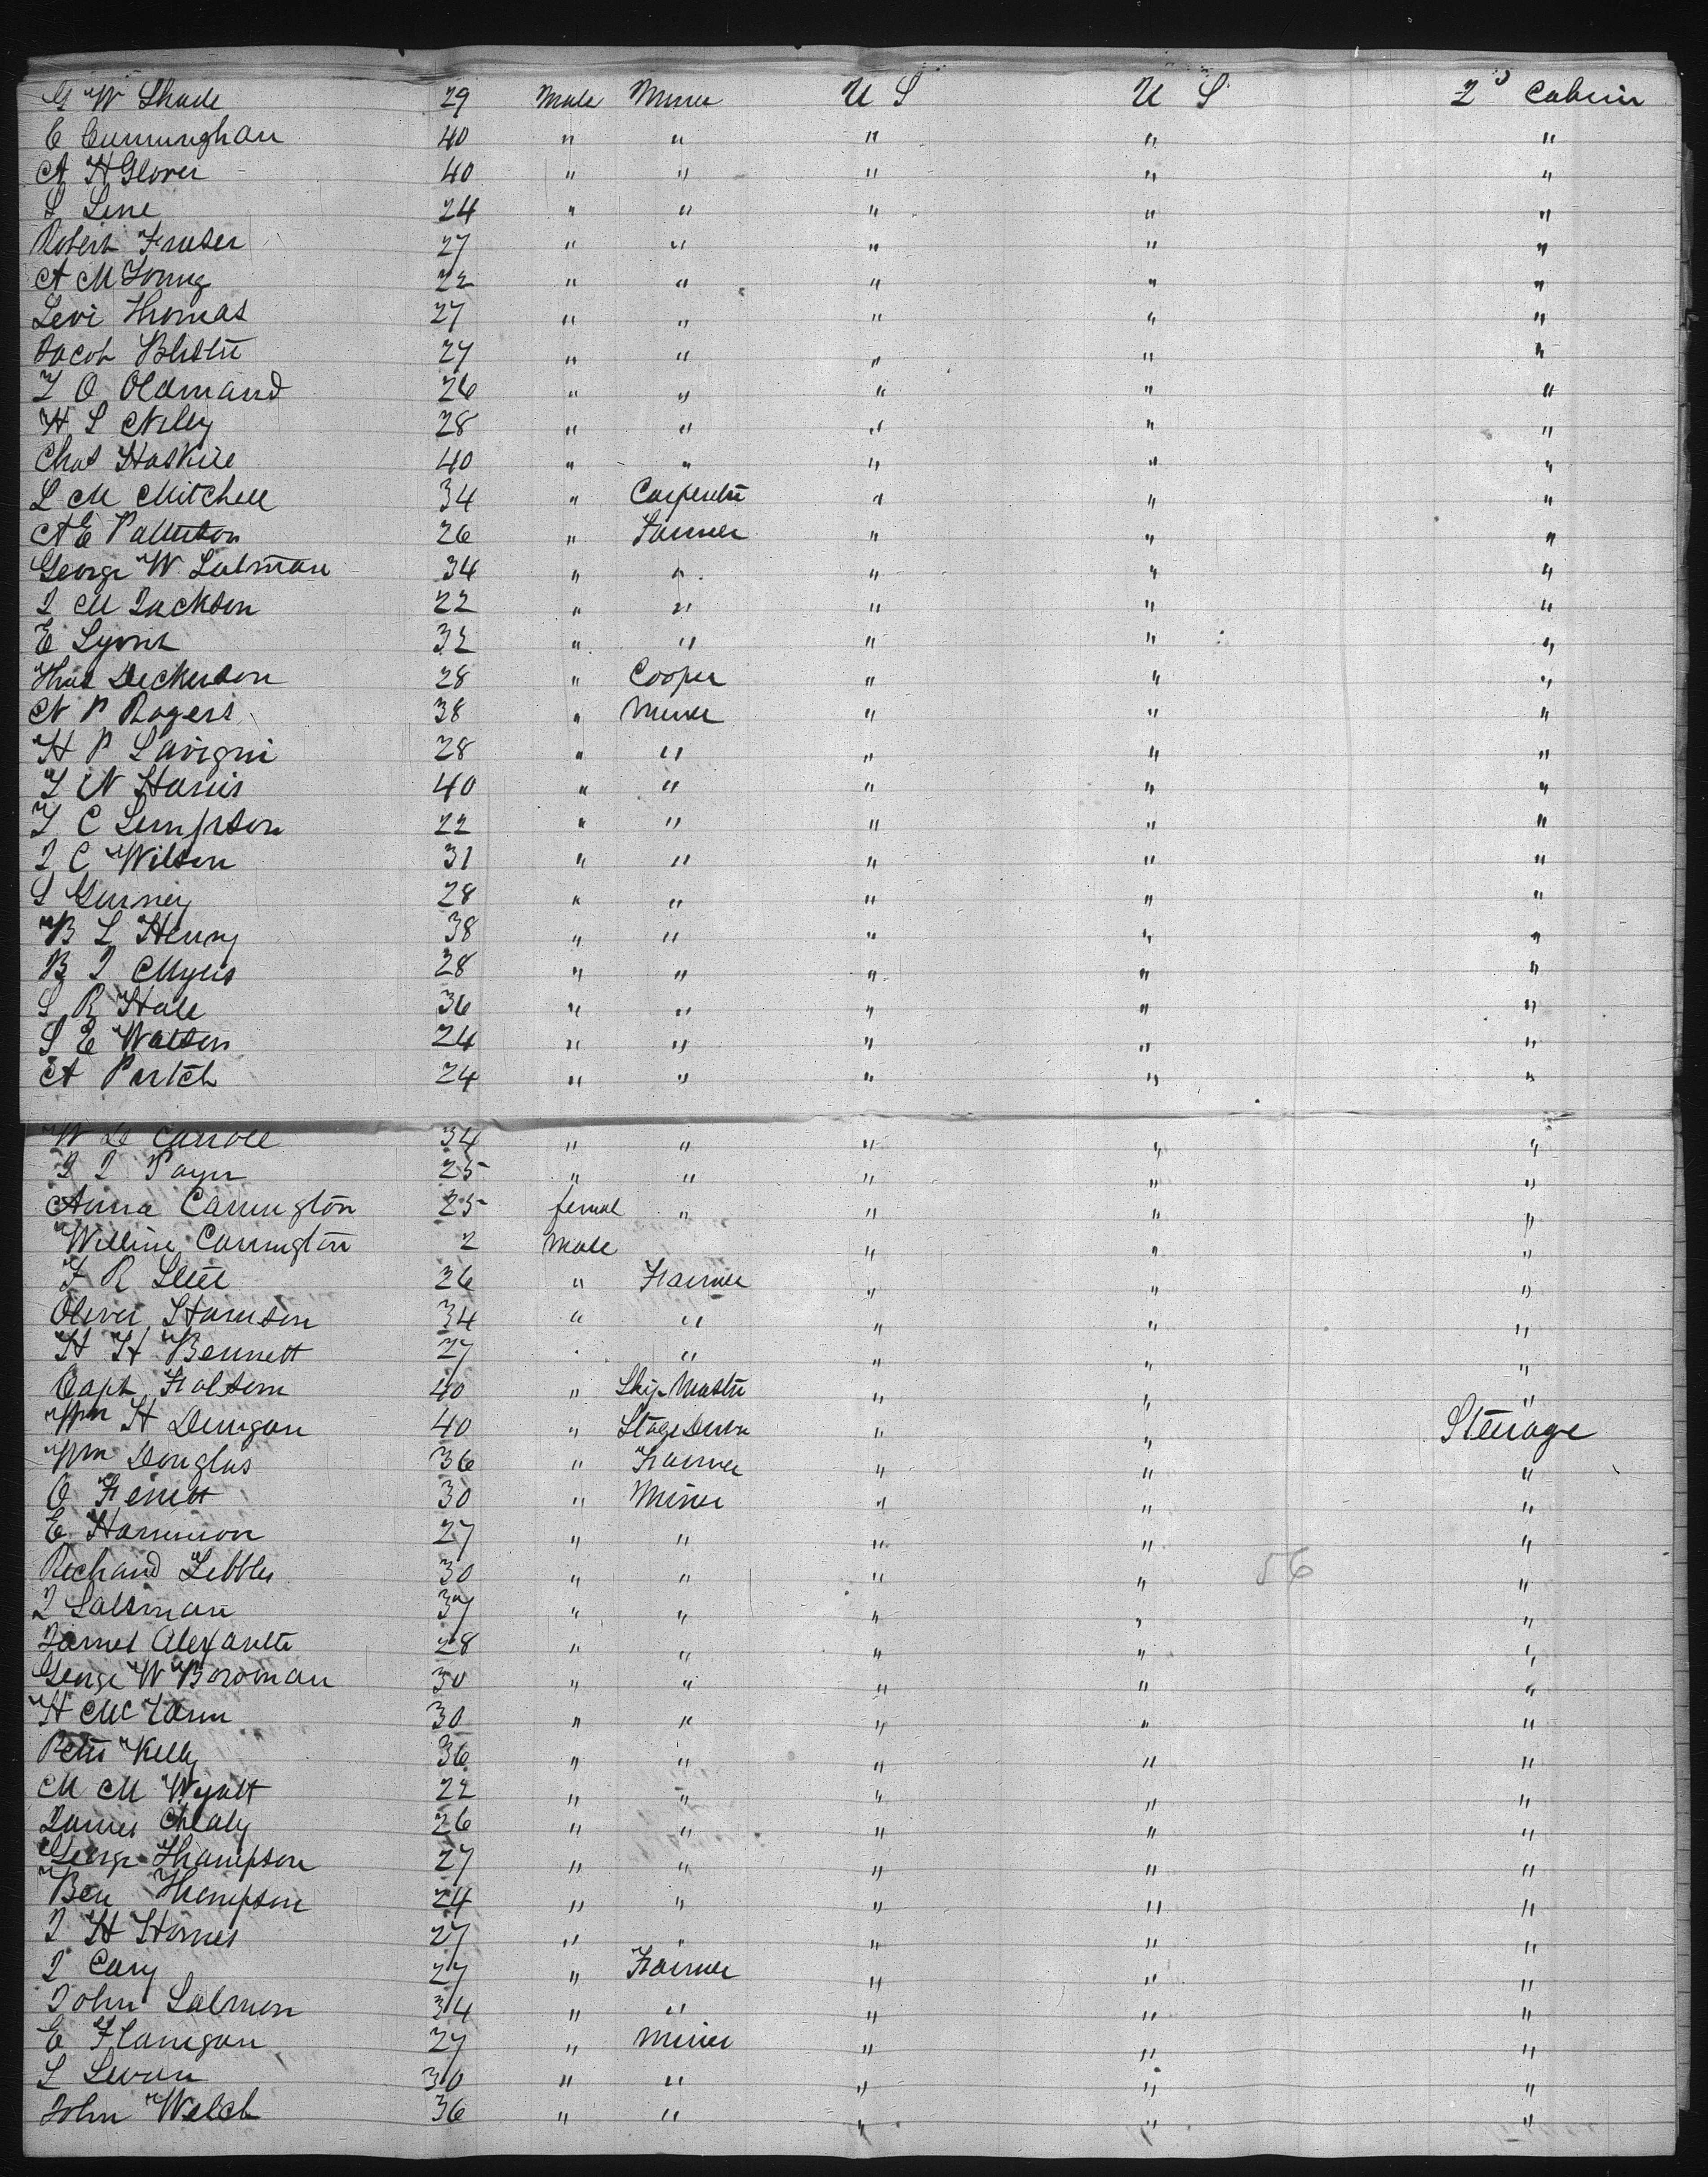 G W Shade 29 Male Miner U S U S 2d Cabin
C Cunningham 40 " " " " "
A H Glover 40 " " " " "
S Line 24 " " " " "
Robert Fraser 27 " " " " "
A M Young 22 " " " " "
Levi Thomas 27 " " " " "
Jacob 27 " " " " "
26 " " " " "
H S Nelly 28 " " " " "
Chas Haskill 40 " " " " "
L M Mitchell 34 " Carpenter " " "
A E Patterson 26 " Farmer " " "
George W Salman 34 " " " " "
J M Jackson 22 " " " " "
E Lyons 32 " " " " "
Thos Dickerson 28 " Cooper " " "
N P Rogers 38 " Miner " " "
H P Lavigni 28 " " " " "
T N Harris 40 " " " " "
T C Simpson 22 " " " " "
J C Wilson 31 " " " " "
S Gurney 28 " " " " "
B L Henry 38 " " " " "
B J Myers 28 " " " " "
S R Hall 36 " " " " "
S E Watson 24 " " " " "
A Partch 24 " " " " "
W Carroll 34 " " " " "
J J Payn 25 " " " " "
Anna Carrington 25 female " " " "
Willie Carrington 2 Male " " "
F R Steel 26 " Farmer " " "
Oliver Harrison 34 " " " " "
H H Bennett 27 " " " " "
Capt Folsom 40 " Ship Master " " "
Wm H Dungan 40 " Stage Driver " " Steerage
Wm Douglas 36 " Farmer " " "
O 30 " Miner " " "
E Harrimon 27 " " " " "
Richard Tebbles 30 " " " 56 " "
J Salsman 37 " " " " "
James Alexander 28 " " " " "
George W Bowman 30 " " " " "
H 30 " " " " "
Peter Kelly 36 " " " " "
M M Wyatt 22 " " " " "
James Healy 26 " " " " "
George Thompson 27 " " " " "
Ben Thompson 24 " " " " "
J H Homes 27 " " " " "
J Cary 27 " Farmer " " "
John Salmon 34 " " " " "
E Flanigan 27 " Miner " " "
S Swan 30 " " " " "
John Welch 36 " " " " "